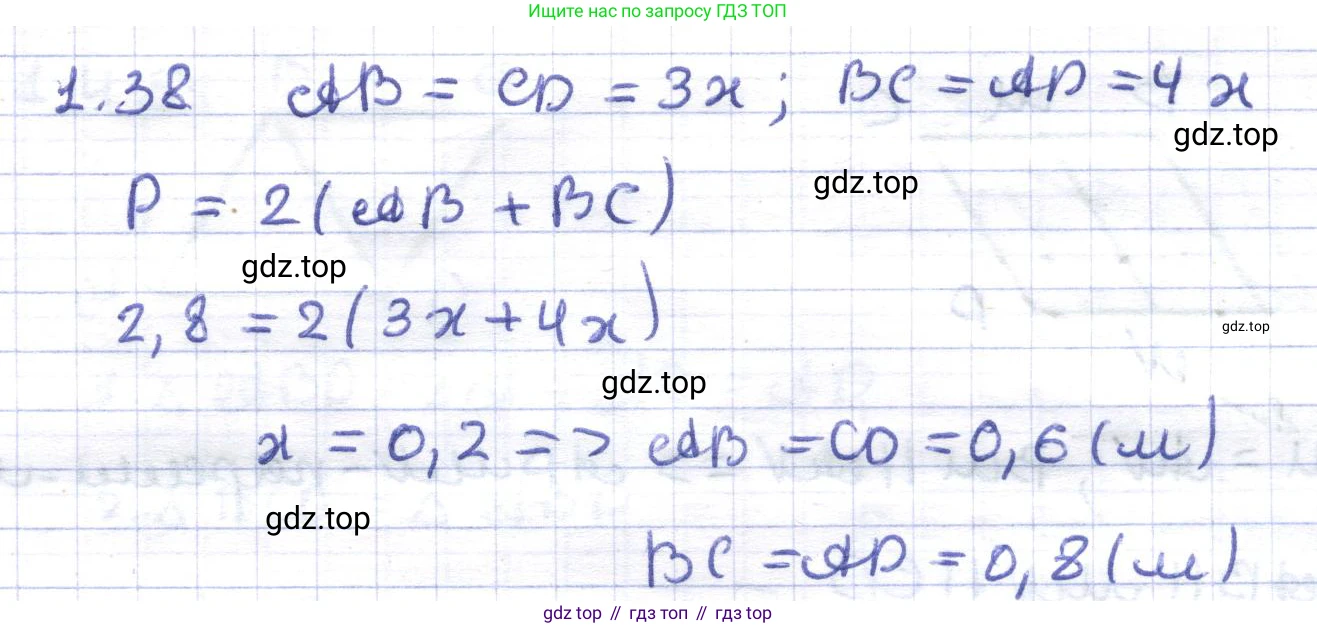 Ищите нас по запросу ГДЗ ТОП
1.38 AB = CD = 3x; BC = AD = 4x
gdz.top
P = 2(AB + BC)
gdz.top
gdz.top
2,8 = 2(3x + 4x)
gdz.top
gdz.top
x = 0,2 => AB = CD = 0,6 (м)
gdz.top
BC = AD = 0,8 (м)
gdz top // гдз топ // gdz top